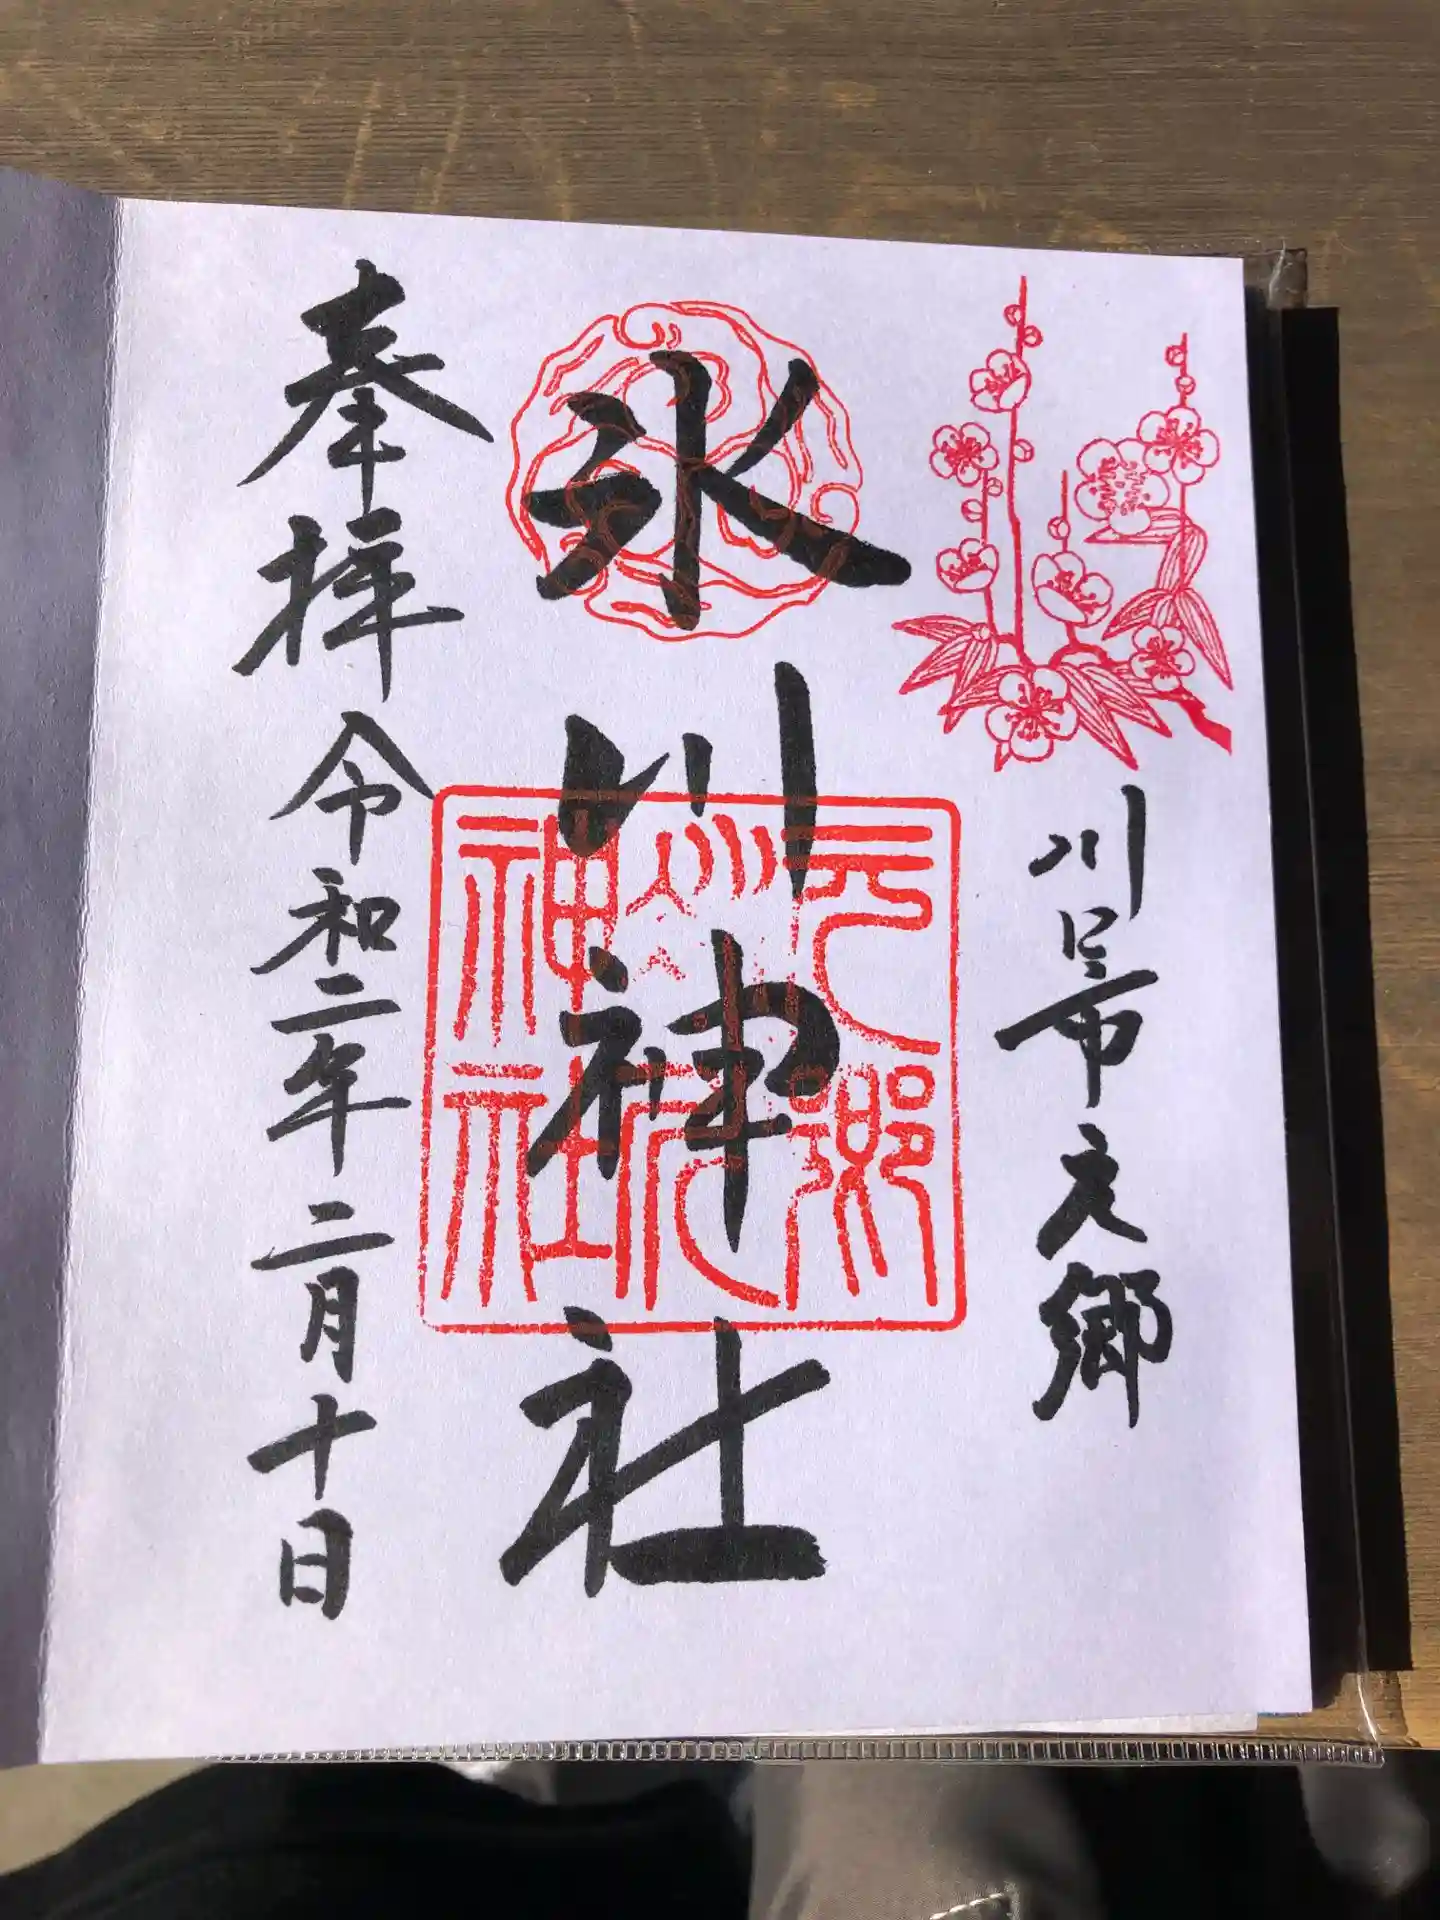 川口市元郷
氷川神社
元郷
氷川
神社
奉拝 令和二年二月十日